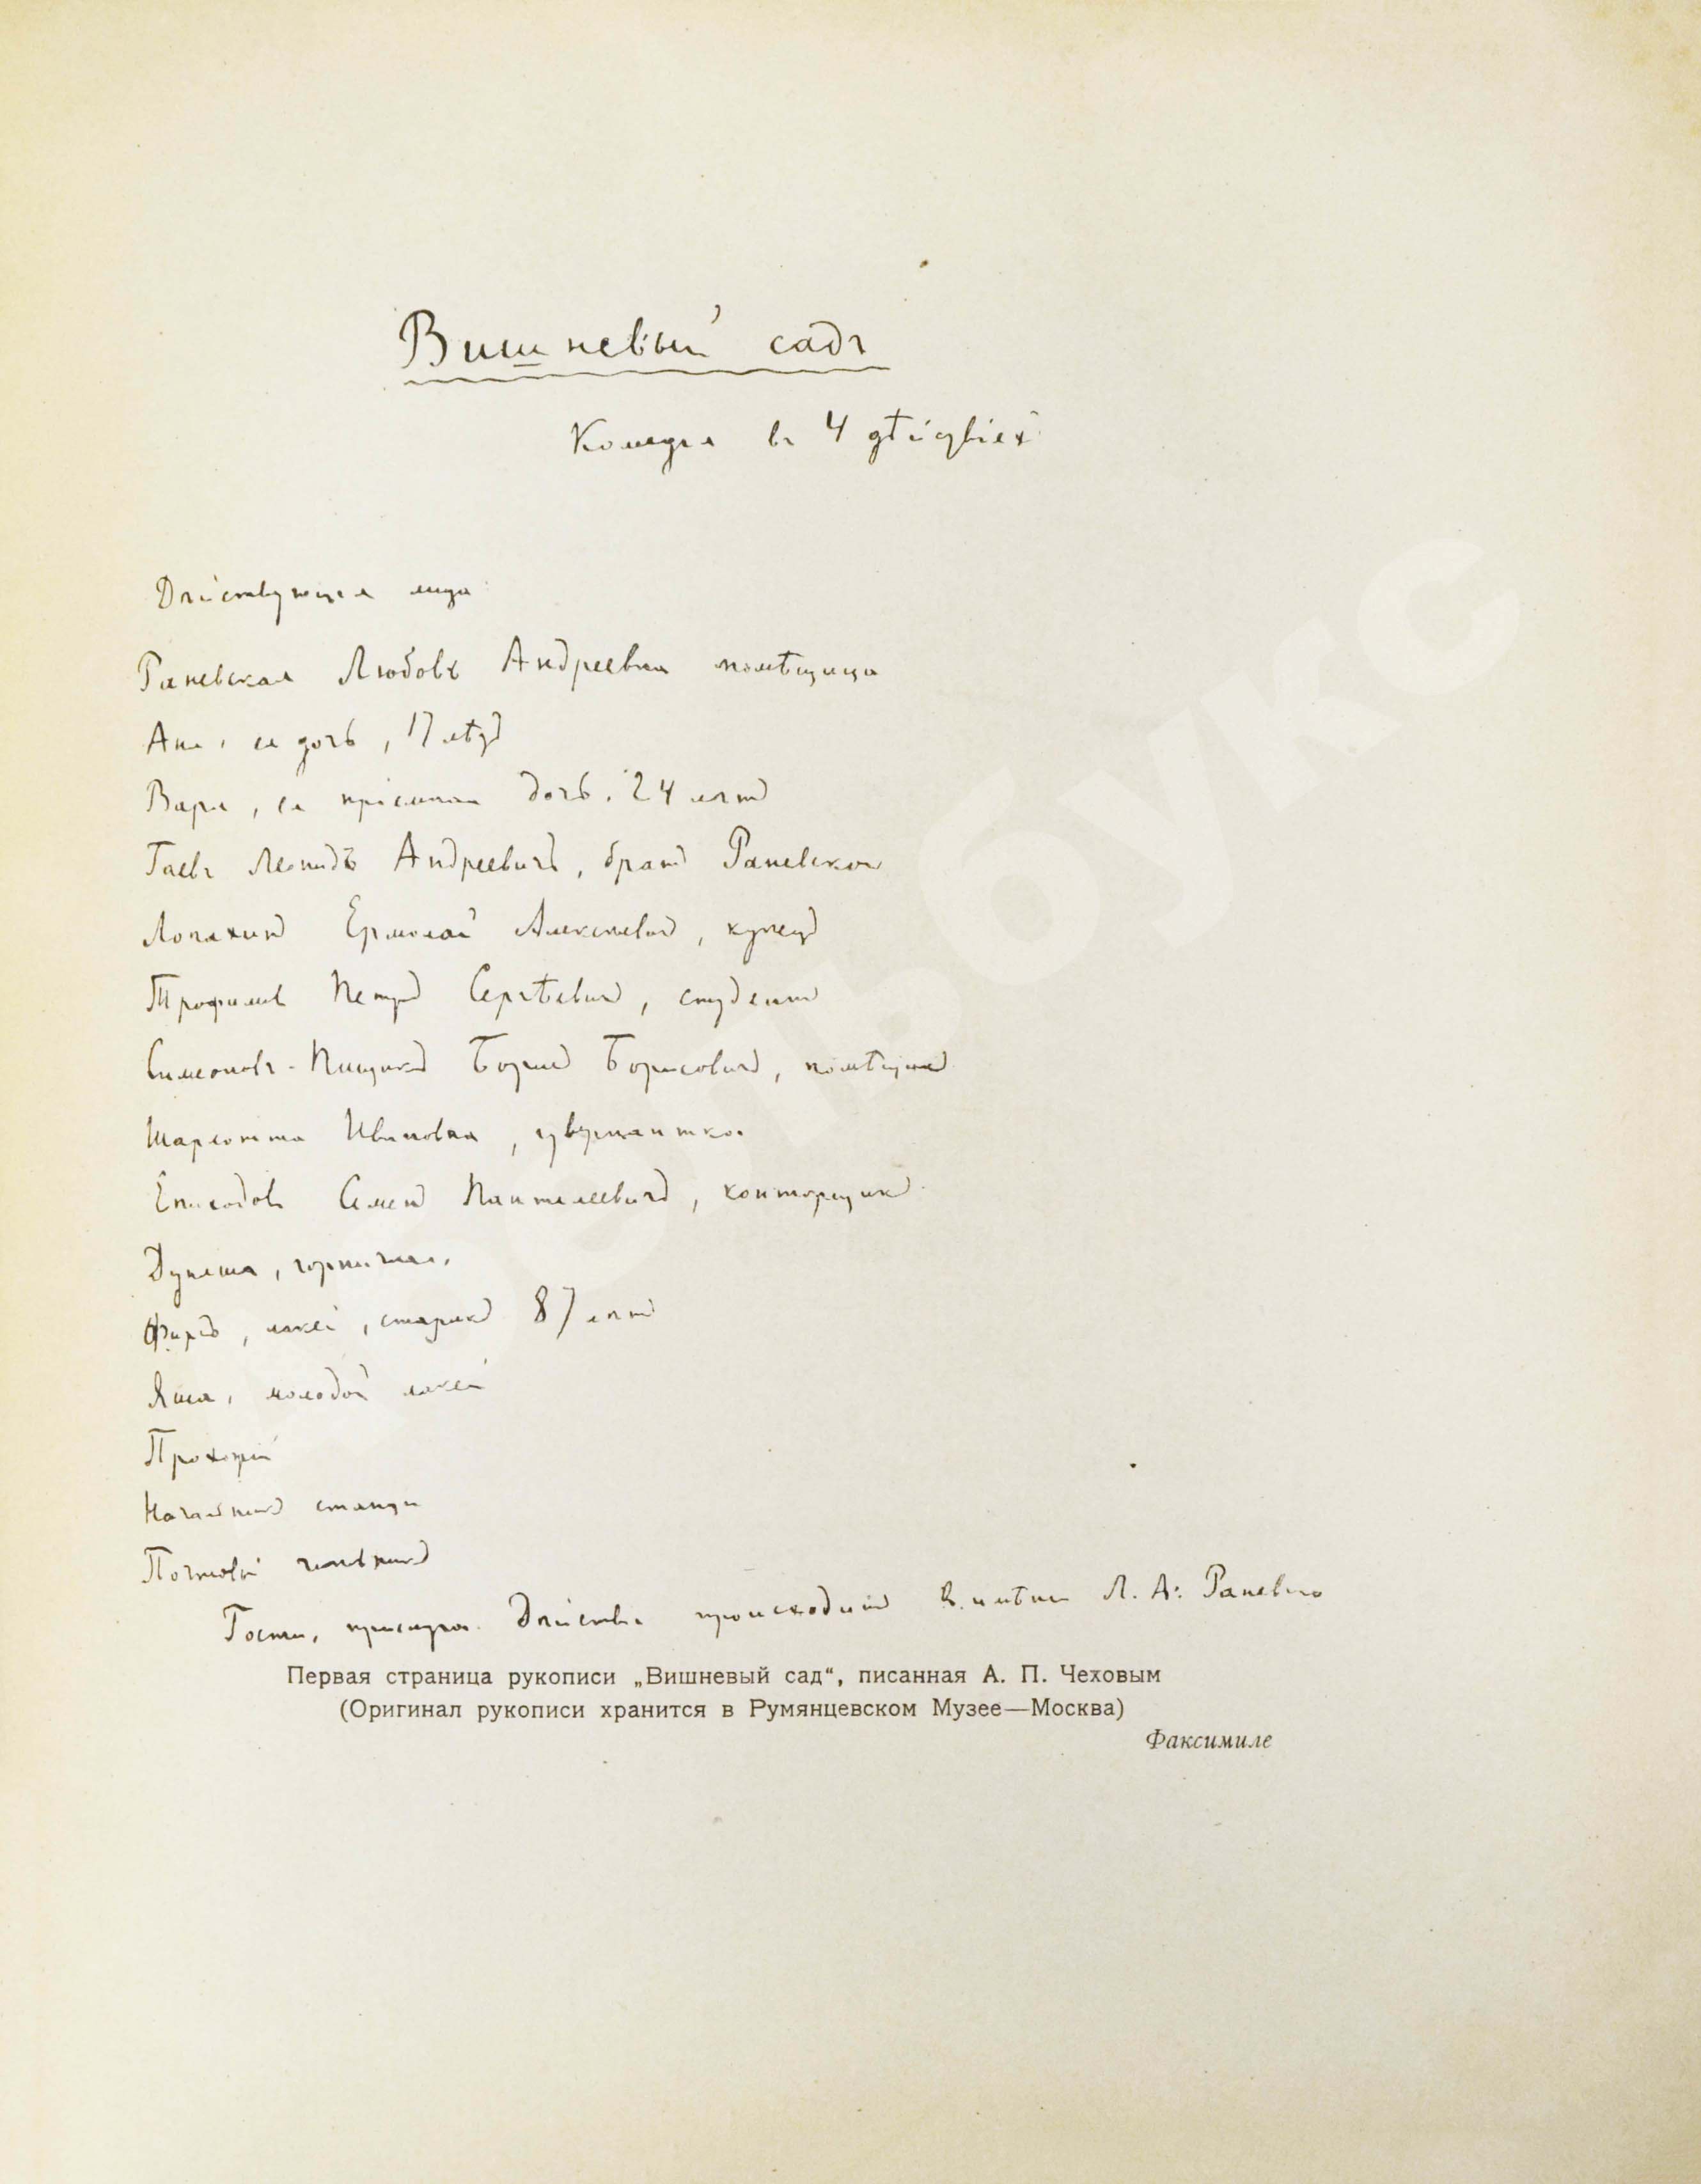 Вишневый садъ
Комедія въ 4 дѣйствіяхъ
Дѣйствующія лица
Раневская Любовь Андреевна помѣщица
Аня, ея дочь, 17 лѣтъ
Варя, ея пріемная дочь, 24 лѣтъ
Гаевъ Леонидъ Андреевичъ, братъ Раневской
Лопахинъ Ермолай Алексѣевичъ, купецъ
Трофимовъ Петръ Сергѣевичъ, студентъ
Симеоновъ-Пищикъ Борисъ Борисовичъ, помѣщикъ
Шарлотта Ивановна, гувернантка
Епиходовъ Семенъ Пантелеевичъ, конторщикъ
Дуняша, горничная,
Фирсъ, лакей, старикъ 87 лѣтъ
Яша, молодой лакей
Прохожій
Начальникъ станціи
Почтовый чиновникъ
Гости, прислуга. Дѣйствіе происходитъ въ имѣніи Л. А. Раневской
Первая страница рукописи „Вишневый сад“, писанная А. П. Чеховым
(Оригинал рукописи хранится в Румянцевском Музее—Москва)
Факсимиле